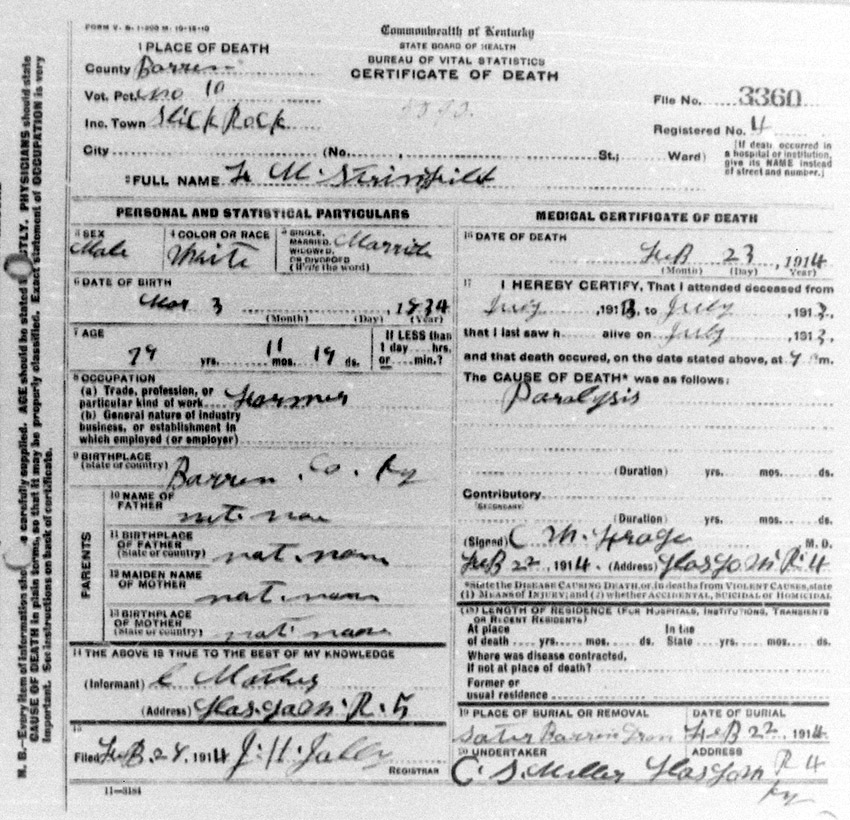 FORM V. S. 1-200 M. 10-18-10
Commonwealth of Kentucky
STATE BOARD OF HEALTH
BUREAU OF VITAL STATISTICS
CERTIFICATE OF DEATH
1 PLACE OF DEATH
County Barren
Vot. Pct. No 10
Inc. Town Slick Rock
City (No. , St.; Ward)
File No. 3360
Registered No. 4
[If death occurred in a hospital or institution, give its NAME instead of street and number.]
2 FULL NAME M.
PERSONAL AND STATISTICAL PARTICULARS
3 SEX
Male
4 COLOR OR RACE
White
5 SINGLE, MARRIED, WIDOWED, OR DIVORCED (Write the word)
Married
6 DATE OF BIRTH
Mar 3, 1834
(Month) (Day) (Year)
7 AGE
79 yrs. 11 mos. 19 ds.
If LESS than 1 day hrs. or min.?
8 OCCUPATION
(a) Trade, profession, or particular kind of work Farmer
(b) General nature of industry business, or establishment in which employed (or employer)
9 BIRTHPLACE
(State or country) Barren Co. Ky
PARENTS
10 NAME OF FATHER
11 BIRTHPLACE OF FATHER
(State or country)
12 MAIDEN NAME OF MOTHER
13 BIRTHPLACE OF MOTHER
(State or country)
14 THE ABOVE IS TRUE TO THE BEST OF MY KNOWLEDGE
(Informant) C
(Address) Glasgow R. 5
15
Filed Feb. 24, 1914 J. H.
REGISTRAR
11-3184
MEDICAL CERTIFICATE OF DEATH
16 DATE OF DEATH
Feb 23, 1914
(Month) (Day) (Year)
17 I HEREBY CERTIFY, That I attended deceased from
July, 1913, to July, 1913,
that I last saw h alive on July, 1913,
and that death occured, on the date stated above, at m.
The CAUSE OF DEATH* was as follows:
Paralysis
(Duration) yrs. mos. ds.
Contributory
(SECONDARY)
(Duration) yrs. mos. ds.
(Signed) C M. M. D.
Feb 22, 1914. (Address) Glasgow R. 4
*State the DISEASE CAUSING DEATH, or, in deaths from VIOLENT CAUSES, state
(1) MEANS OF INJURY; and (2) whether ACCIDENTAL, SUICIDAL or HOMICIDAL
(18) LENGTH OF RESIDENCE (FOR HOSPITALS, INSTITUTIONS, TRANSIENTS OR RECENT RESIDENTS)
At place of death yrs. mos. ds. In the State yrs. mos. ds.
Where was disease contracted, If not at place of death?
Former or usual residence
19 PLACE OF BURIAL OR REMOVAL
DATE OF BURIAL
Feb 22, 1914
20 UNDERTAKER
ADDRESS
C S Miller Glasgow R 4
Ky
N. B.—Every item of information should be carefully supplied. AGE should be stated EXACTLY. PHYSICIANS should state
CAUSE OF DEATH in plain terms, so that it may be properly classified. Exact statement of OCCUPATION is very
important. See instructions on back of certificate.